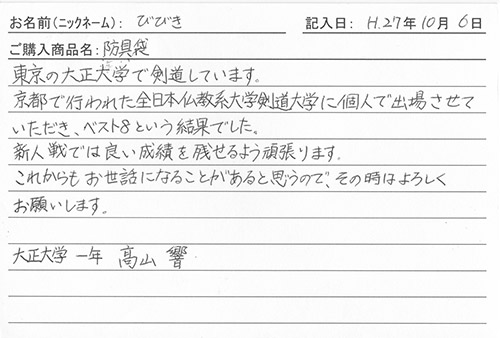 お名前(ニックネーム): びびき 記入日: H.27年10月6日
ご購入商品名: 防具袋
東京の大正大学で剣道しています。
京都で行われた全日本仏教系大学剣道大学に個人で出場させて
いただき、ベスト8という結果でした。
新人戦では良い成績を残せるよう頑張ります。
これからもお世話になることがあると思うので、その時はよろしく
お願いします。
大正大学 一年 高山 響